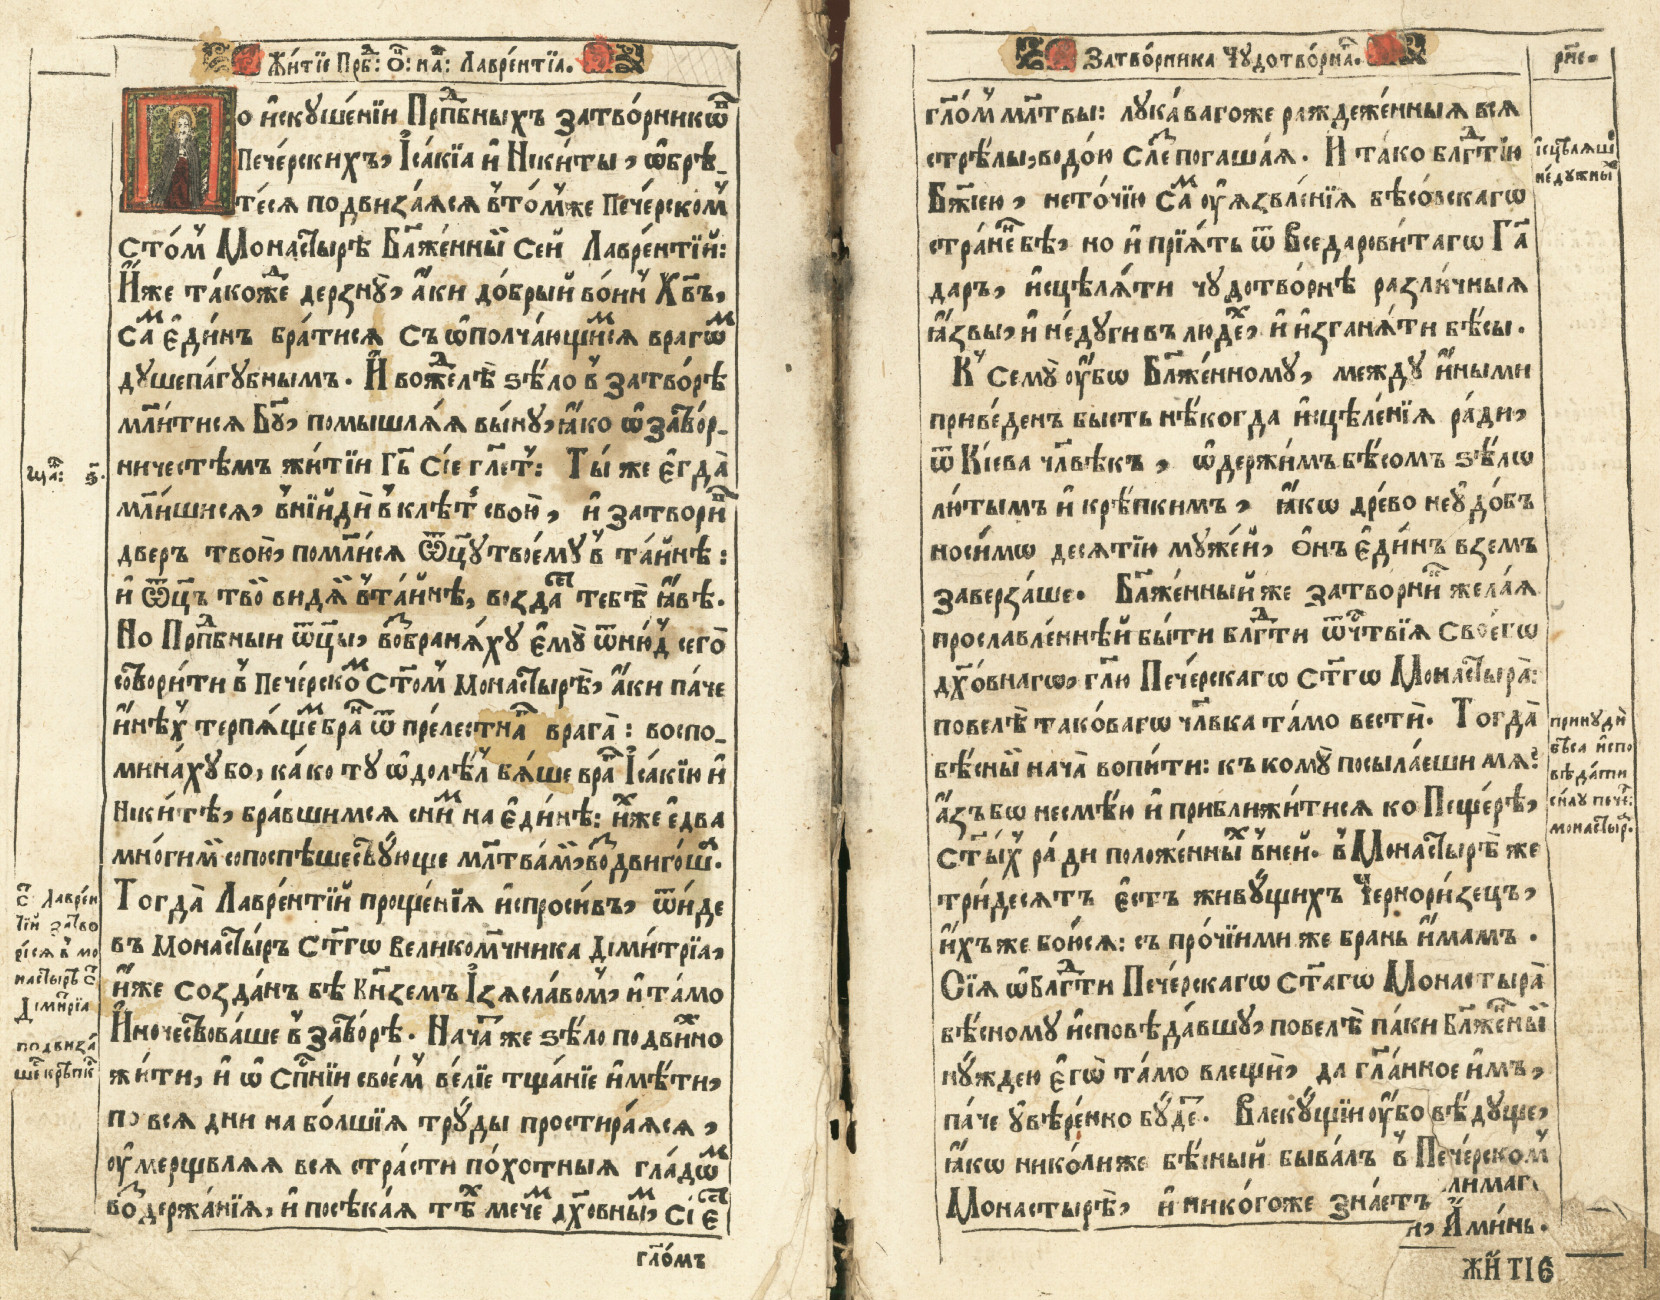 Жи́тїе Прпⷣб: Ѻ҃: на́: Лавре́нтїа.
По и҆скуше́нїи Прпⷣбныхъ затво́рникѡⷡ
Пече́рскихъ, І҆са́кїа и҆ Ники́ты, ѡ҆брѣ́_
те́сѧ подвиза́ѧсѧ в̾то́мже Пече́рскомъ
ст҃о́мъ Монасты́рѣ Бл҃же́нный сей Лавре́нтїй:
И҆́же та́кожⷣе дерзну̀, а҆́ки до́брый во́инъ Хв҃ъ,
саⷨ є҆ди́нъ бра́тисѧ съ ѡ҆полча́ющиⷨсѧ врагѡⷨ
душепа́губнымъ. И҆ вожⷣелѣ̀ ѕѣ́ло в̾ затво́рѣ
мл҃и́тисѧ Бг҃у, помышлѧ́ѧ вы́ну, ꙗ҆́ко ѡ҆ затво́р_
ничестѣмъ житїи Гь҃ сїе гл҃етъ: Ты́ же є҆гда̀
мл҃и́шисѧ, в̾ни́йди в̾ клѣ́ть свою̀, и҆ затвори́в
дверъ твою̀, помл҃и́сѧ Ѿц҃у твоему́ в̾ та́йнѣ:
и҆ Ѿц҃ъ тво́й видѧ́й в̾та́йнѣ, воздасть тебѣ̀ ꙗ҆́вѣ.
Но Прпⷣбныи ѿц҃ы, возбранѧ́ху є҆му̀ ѿню́д сего̀
сотвори́ти в̾ Пече́рскоⷨ ст҃о́мъ монасты́рѣ, а҆́ки па́че
и҆́нѣхъ терпѧ́щеⷨ бра́нь ѿ пре́лестнаⷢ врага̀: воспо_
мина́хубо, ка́ко ту ѡ҆долѣ́лъ бѧ́ше враⷢ҇ І҆са́кїю и҆
Ники́тѣ, бра́вшимсѧ сниⷨ на є҆ди́нѣ: и҆̀хже є҆два
мно́гими сопоспѣ́шествꙋ́юще мл҃тва́ми, воздвиго́ша.
Тогда̀ Лавре́нтїй проще́нїѧ и҆спроси́въ, ѿи́де
въ монасты́ръ ст҃гѡ великомч҃ника Дїми́трїа,
и҆́же созда́нъ бѣ̀ Кн҃земъ І҆зѧсла́вомъ, и҆ та́мо
И҆ночествова́ше в̾ затво́рѣ. Нача́т же ѕѣ́ло подви́жно
жи́ти, и҆ ѡ сп҃се́нїи своеⷨ ве́лїе тща́нїе и҆мѣ́ти,
по всѧ дни на бо́лшїѧ трꙋ́ды простира́ѧсѧ,
оу҆мерщвлѧ́ѧ всѧ стра́сти по́хотныѧ гла́дѡⷨ
воздержа́нїѧ, и҆ посѣка́ѧ тѣⷯ мече́ⷨ дх҃о́вныⷨ, сїе́ єсть
гл҃о́мъ
Щаⷭ: ѕ҃.
С҃ Лавре́н
тїй затво
ри́сѧ в̾ мо
насты́рѣ с҃
Дїми́трїа
подвиза́
шесѧ крѣ́пкѡ
Затво́рника Чудотво́рнаⷢ.
рн҃е.
гл҃о́мъ мл҃твы: лука́вагоже раждеже́нныѧ всѧ
стрѣ́лы, водо́ю слеⷥ погаша́ѧ. И та́ко блгⷣтїю
Бж҃їею, нето́чїю саⷨ оу҆ѧзвле́нїѧ бѣсо́вскагѡ
стра́ненъ бѣ, но и҆ прїѧ́ть ѿ Вседарови́тагѡ Га҃
даръ, и҆сцѣлѧ́ти чудотво́рнѣ разли́чныѧ
ꙗ҆́звы, и҆ не́дуги въ лю́деⷯ, и҆ и҆зганѧ́ти бѣ́сы.
К̾ Сему̀ оу҆́бѡ Бл҃же́нному, между и҆́ными
приве́денъ бысть нѣ́когда и҆сцѣле́нїѧ ра́ди,
ѿ Кі́ева чл҃вѣ́къ, ѡ҆держи́мъ бѣ́сомъ ѕѣ́лѡ
лю́тымъ и҆ крѣ́пкимъ, ꙗ҆́кѡ дре́во неу҆до́въ
носи́мѡ десѧтїю муже́й, ѻ҆́нъ є҆ди́нъ взе́мъ
заверза́ше. Бл҃же́нный же затворни́к жела́ѧ
прославле́ннѣй бы́ти блгⷣти ѿч҃твїѧ своегѡ
дх҃о́внагѡ, гл҃ю Пече́рскагѡ ст҃гѡ Монастыра̀:
повелѣ̀ тако́вагѡ чл҃вка та́мо вестѝ. Тогда̀
бѣ́сный нача̀ вопи́ти: къ кому̀ посыла́еши мѧ̀;
а҆́зъ бѡ несмѣ́ю и҆ прибли́жи́тисѧ ко Пеще́рѣ,
ст҃ы́х ра́ди положе́нныⷯ в̾ней. в̾ Монасты́рѣ же
три́десѧтъ є҆́сть живꙋ́щихъ Черноризецъ,
и҆́хъже бою́сѧ: съ про́чїими же брань и҆́мамъ.
Сїѧ ѡ҆ блгⷣти Пече́рскагѡ ст҃агѡ Монастыра̀
бѣ́сному и҆сповѣ́давшу, повелѣ̀ па́ки Бл҃же́нный
нꙋ́ждею є҆го̀ та́мо влещѝ, да гл҃анное и҆мъ,
па́че у҆вѣ́ренно бꙋ́деⷮ. Влекꙋ́щїи оу҆́бо вѣ́дуще,
ꙗ҆́кѡ нико́лиже бѣ́сный быва́лъ в̾ Пече́рскомъ
Монасты́рѣ, и҆ никого́же зна́етъ
лимагⷪ
и, А҆ми́нь.
ЖИ́ТІЕ
і҆сцѣлѧ́ше
неду́жныѧ
принуди̇̀
бѣса и҆спо
вѣ́дати
си́лу пече́:
монасты́р.